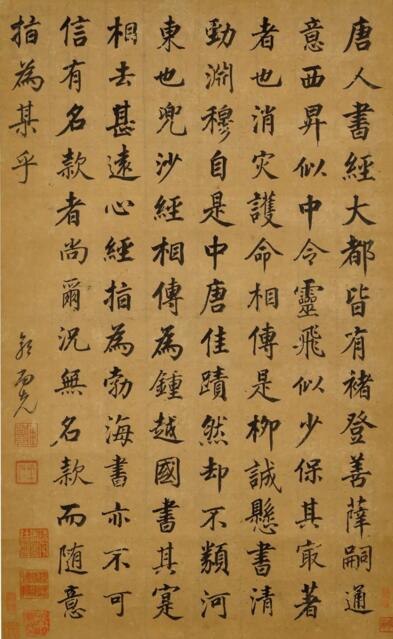 唐人書經大都皆有褚登善薛嗣通
意西昇似中令靈飛似少保其最著
者也消灾護命相傳是柳誠懸書清
勁淵穆自是中唐佳蹟然却不類河
東也兜沙經相傳為鍾越國書其寔
相去甚遠心經指為勃海書亦不可
信有名款者尚爾況無名款而随意
指為某乎